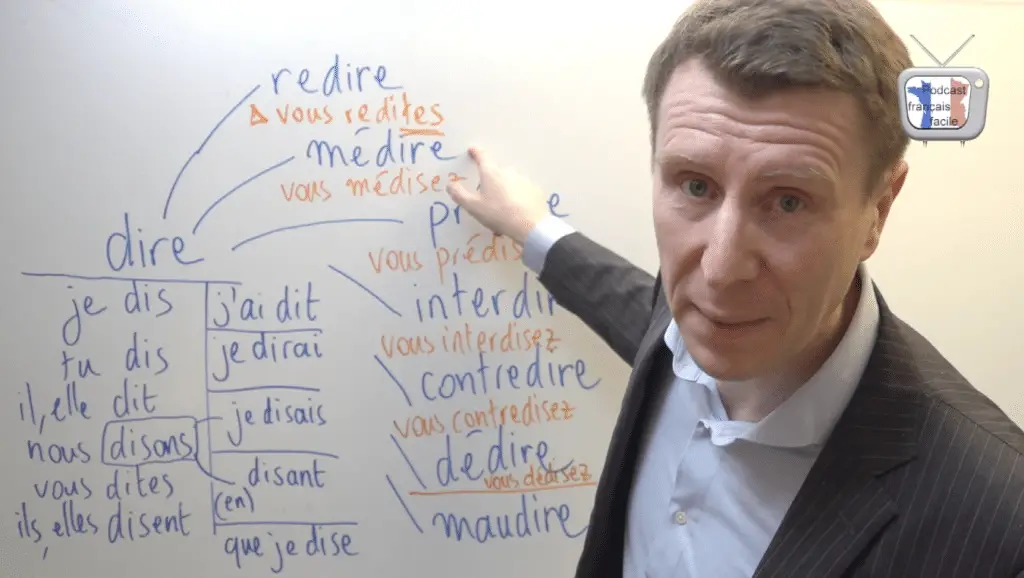 redire
Δ vous redites
médire
vous médisez
dire
vous prédis
interdir
vous interdisez
contredire
vous contredisez
dédire
vous dédisez
maudire
je dis
tu dis
il, elle dit
nous disons
vous dites
ils, elles disent
j'ai dit
je dirai
je disais
disant
(en)
que je dise
Podcast
français
facile